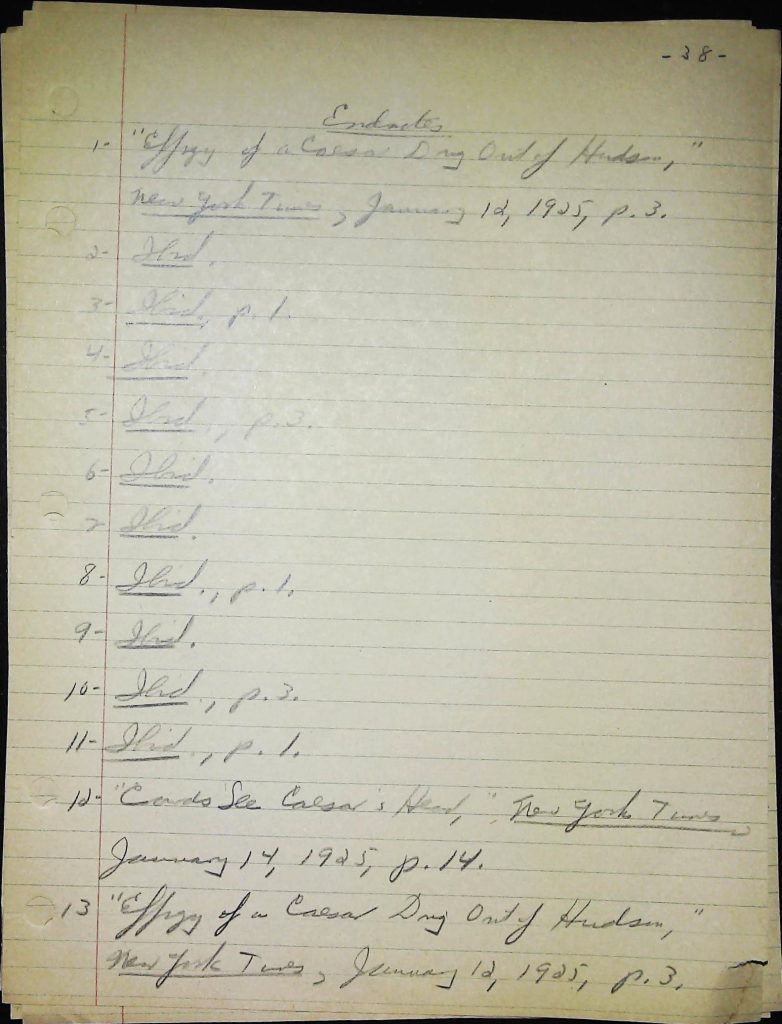 - 38 -
Endnotes
1- "Effigy of a Caesar Dug Out of Hudson,"
New York Times, January 12, 1925, p. 3.
2- Ibid.
3- Ibid., p. 1.
4- Ibid.
5- Ibid., p. 3.
6- Ibid.
7- Ibid.
8- Ibid., p. 1.
9- Ibid.
10- Ibid., p. 3.
11- Ibid., p. 1.
12- "Crowds See Caesar's Head," New York Times,
January 14, 1925, p. 14.
13 "Effigy of a Caesar Dug Out of Hudson,"
New York Times, January 12, 1925, p. 3.